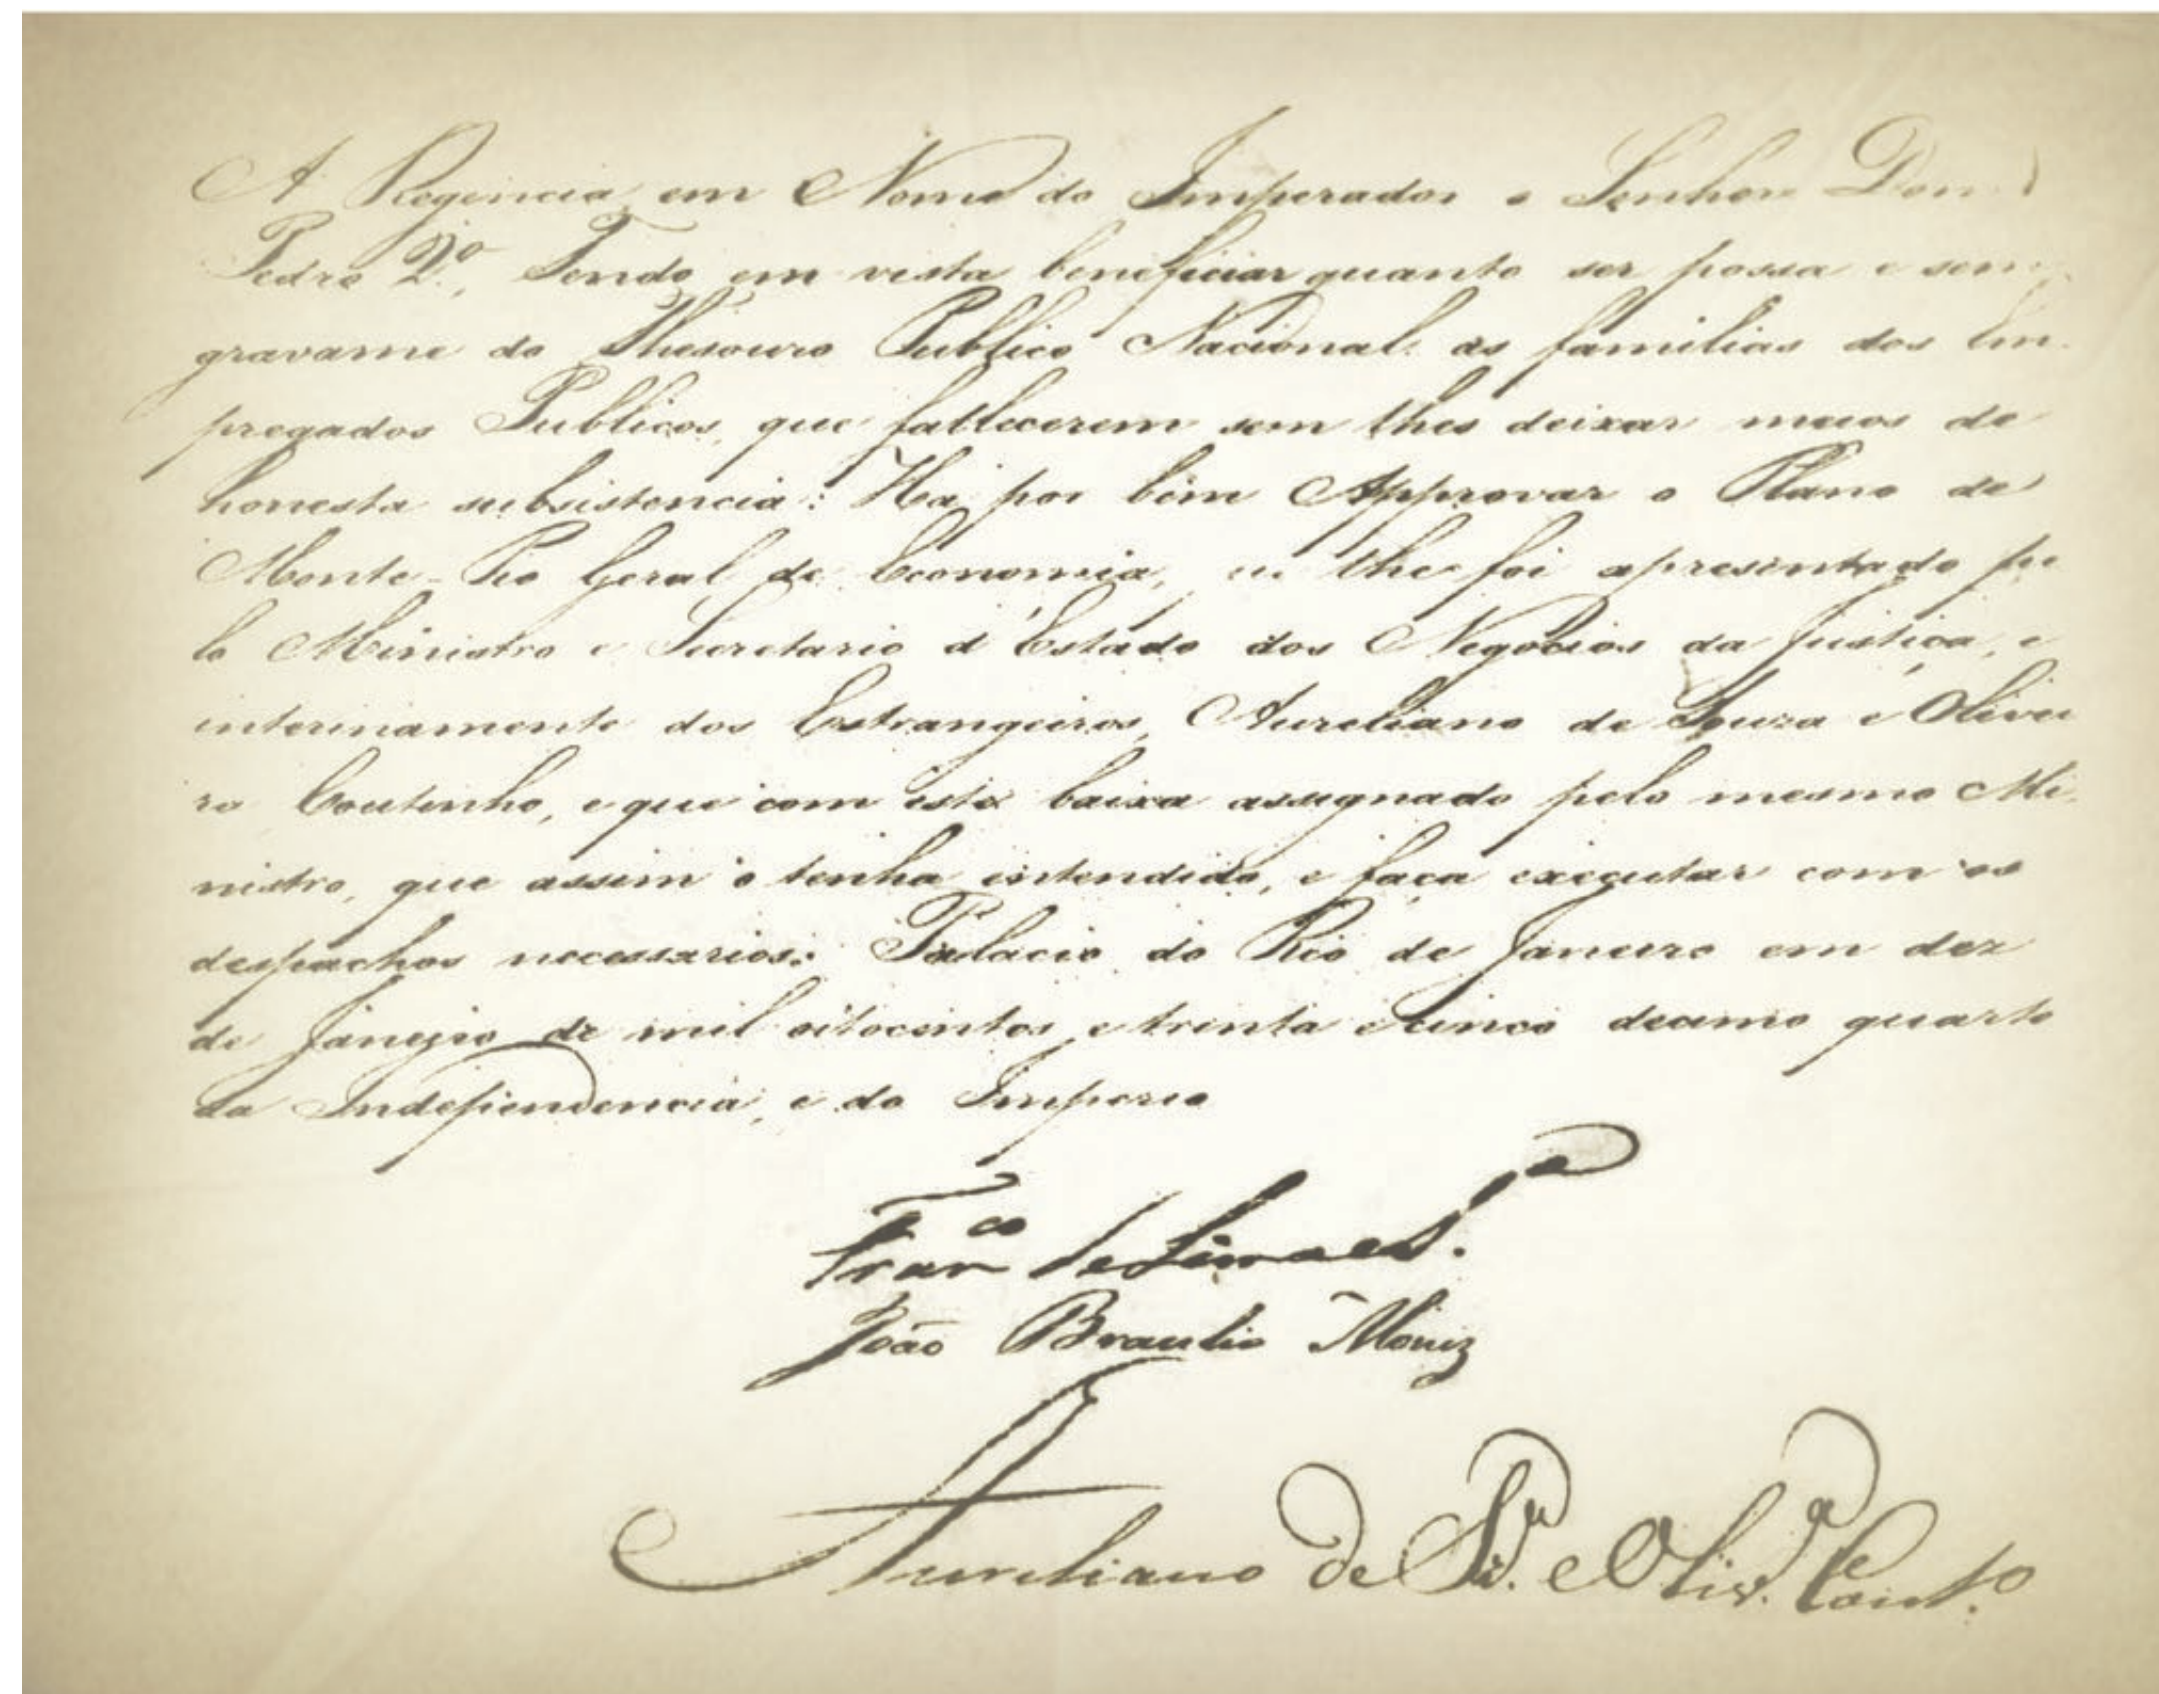 A Regencia em Nome do Imperador o Senhor Dom
Pedro 2.º, Tendo em vista beneficiar quanto ser possa e sem
gravame do Thesouro Publico Nacional as familias dos Em-
pregados Publicos, que fallecerem sem lhes deixar meios de
honesta subsistencia: Ha por bem Approvar o Plano de
Monte-Pio Geral de Economia, lhe foi apresentado pe
lo Ministro e Secretario d'Estado dos Negocios da Justiça, e
interinamente dos Estrangeiros, Aureliano de Souza e Olivei
ra Coutinho, e que com este baixa assignado pelo mesmo Mi-
nistro, que assim o tenha intendido, e faça executar com os
despachos necessarios. Palacio do Rio de Janeiro em dez
de Janeiro de mil oitocentos e trinta e cinco decimo quarto
da Independencia, e do Imperio
Fran.co de Lima e S.a
João Braulio Moniz
Aureliano de Sz.a e Oliv.a Cout.o